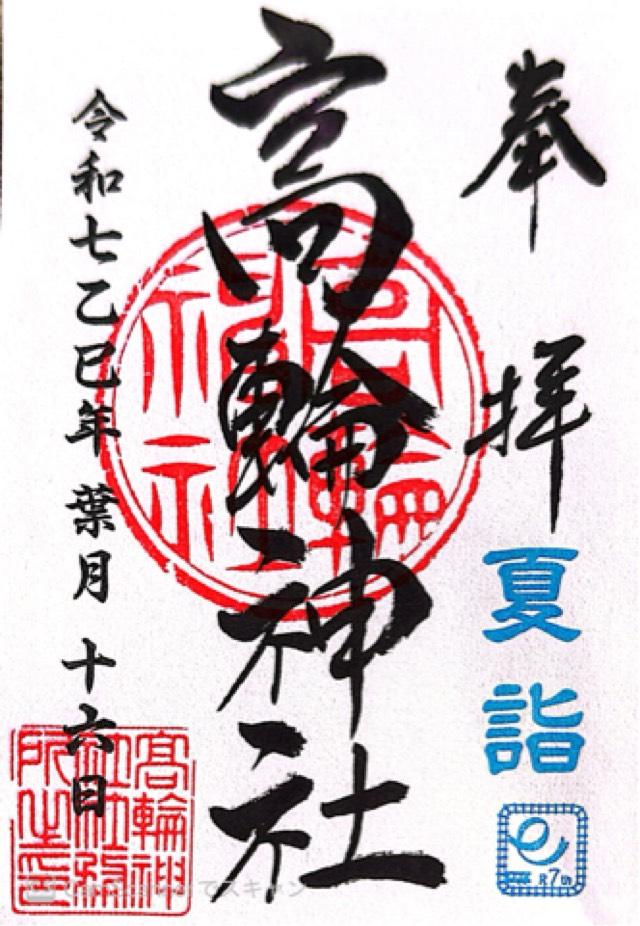 奉拝
夏詣
R7
高輪神社
高輪神社
令和七乙巳年 葉月 十六日
高輪神社社務所之印
でスキャン